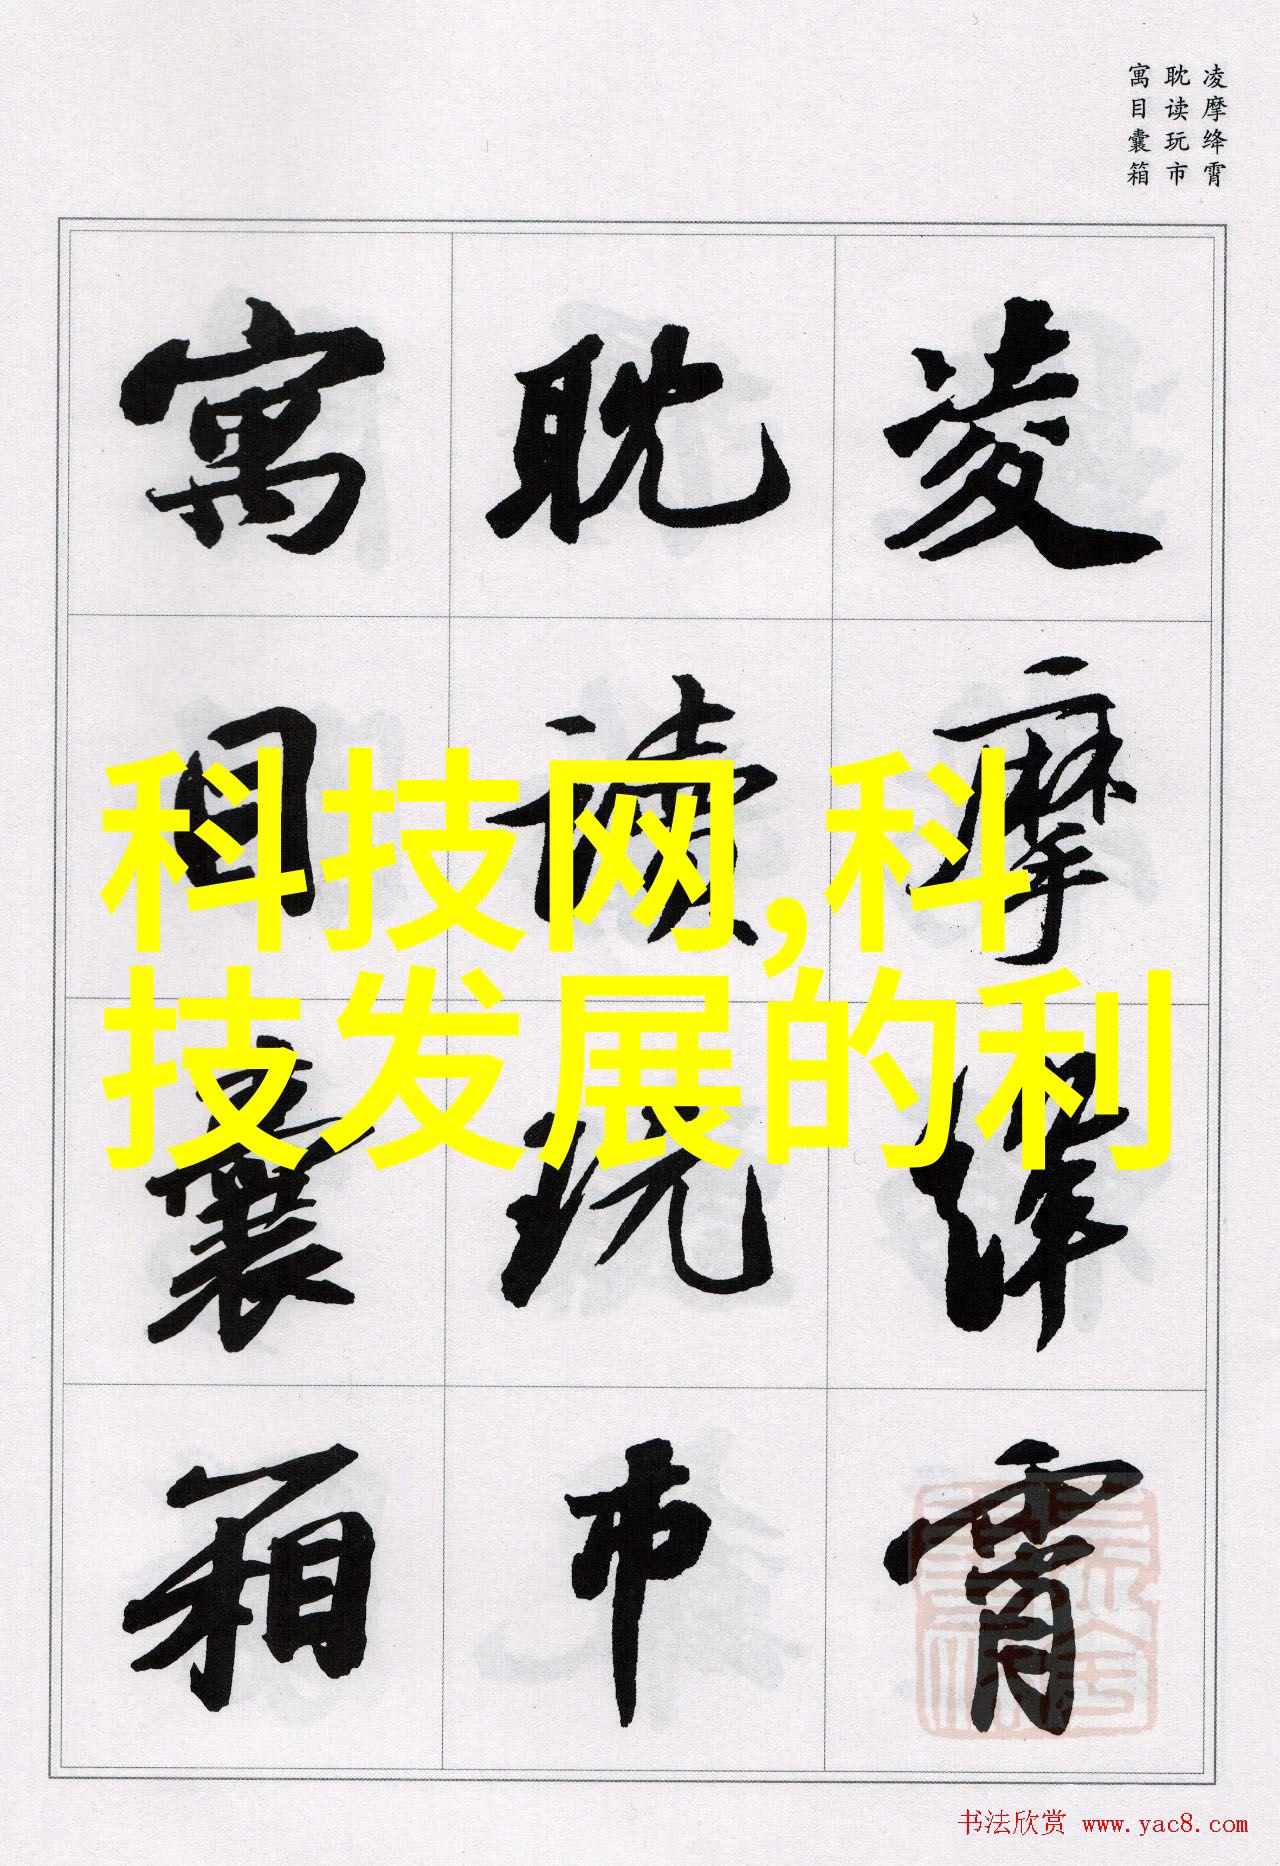 凌摩绛霄
耽读玩市
寓目囊箱
凌摩绛霄
耽读玩市
寓目囊箱
科技网,科
技发展的利
书法欣赏 www.yac8.com